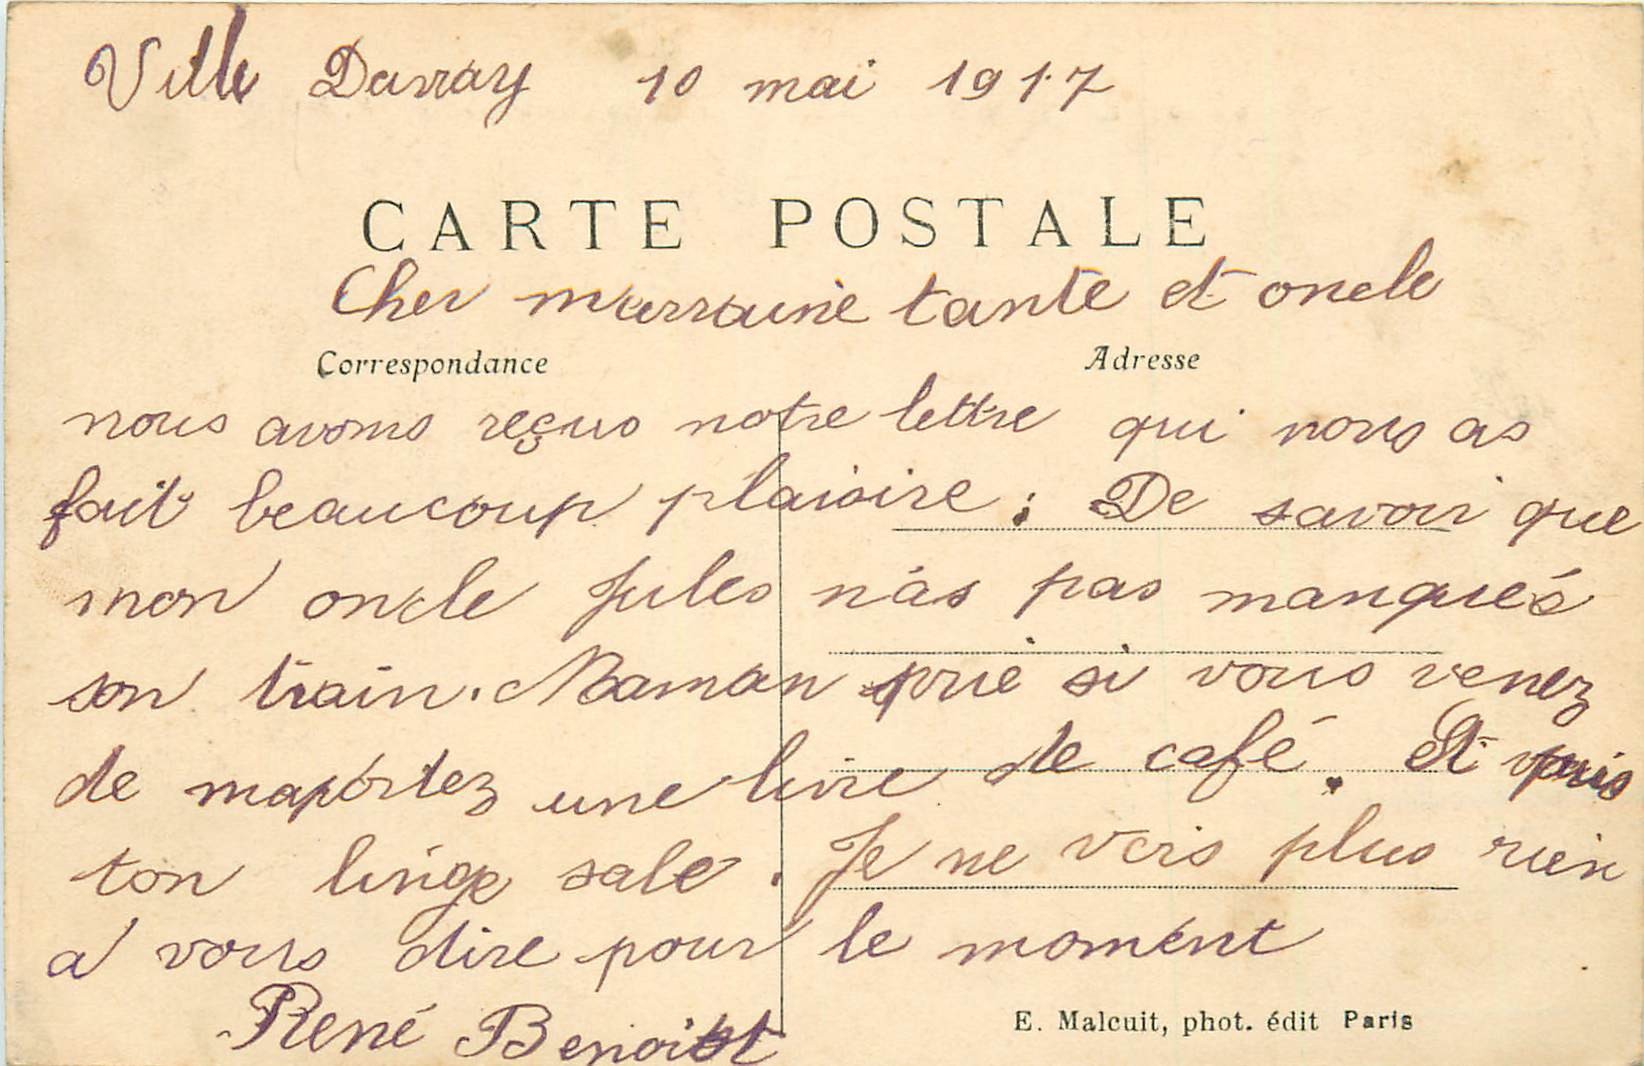 Ville Davray 10 mai 1917
CARTE POSTALE
Cher marraine tante et oncle
Correspondance Adresse
nous avons reçus notre lettre qui nous as
fait beaucoup plaisire ; De savoir que
mon oncle Jules n'as pas manqués
son train. Maman prie si vous venez
de maportez une livre de café. Et puis
ton linge sale. Je ne vois plus rien
a vous dire pour le moment
René Benoist
E. Malcuit, phot. édit Paris